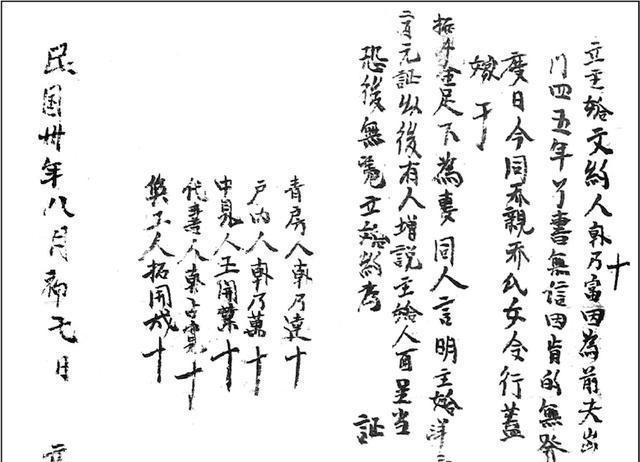 立主婚文約人郭乃富因為前夫出
門四五年了書無信因肯的無發
度日今同乔親乔氏女令行蓋
嫁于
拓年金足下為妻同人言明主婚洋
二百元証以後有人增説主婚人面呈当
恐後無憑立婚約為
証
青房人郭乃連十
户内人郭乃萬十
中見人王開業十
代書人郭占寬十
拓開成十
民国卅年八月初七日